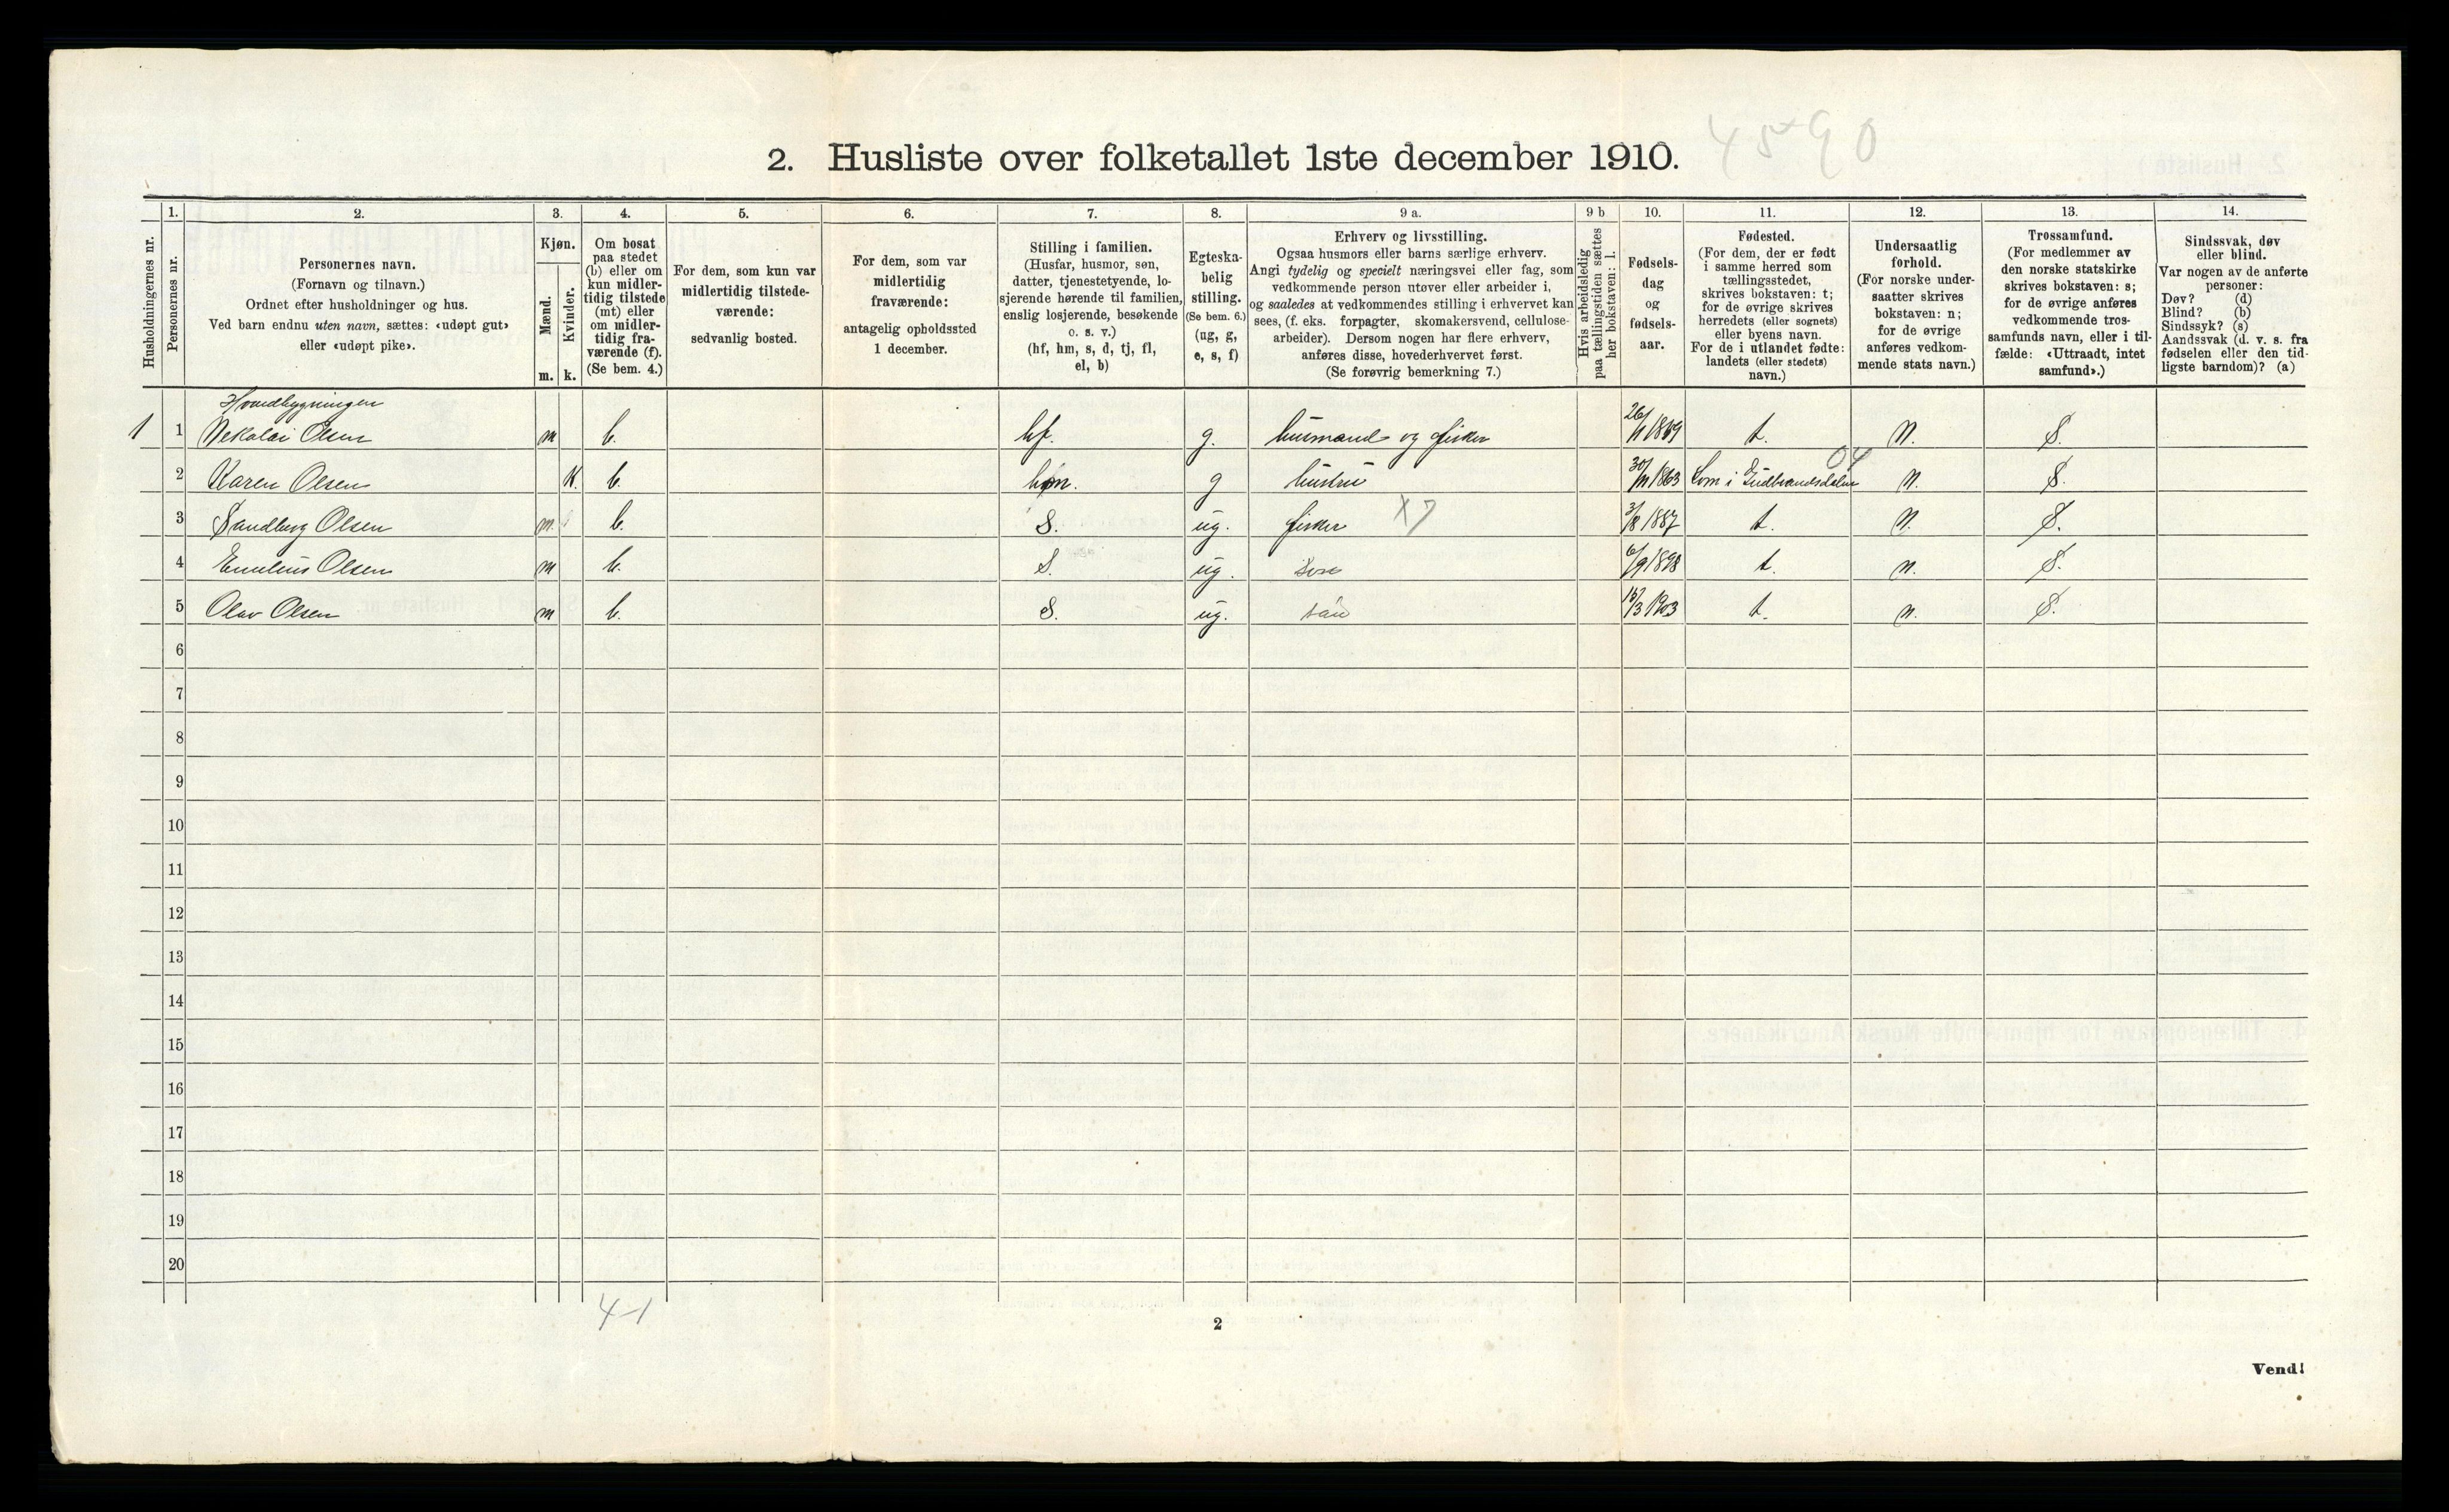 2. Husliste over folketallet 1ste december 1910.
4590
Husholdningernes nr.
1.
Personernes nr.
2.
Personernes navn.
(Fornavn og tilnavn.)
Ordnet efter husholdninger og hus.
Ved barn endnu uten navn, sættes: «udøpt gut»
eller «udøpt pike».
3.
Kjøn.
Mænd.
Kvinder.
m. k.
4.
Om bosat
paa stedet
(b) eller om
kun midler-
tidig tilstede
(mt) eller
om midler-
tidig fra-
værende (f).
(Se bem. 4.)
5.
For dem, som kun var
midlertidig tilstede-
værende:
sedvanlig bosted.
6.
For dem, som var
midlertidig
fraværende:
antagelig opholdssted
1 december.
7.
Stilling i familien.
(Husfar, husmor, søn,
datter, tjenestetyende, lo-
sjerende hørende til familien,
enslig losjerende, besøkende
o. s. v.)
(hf, hm, s, d, tj, fl,
el, b)
8.
Egteska-
belig
stilling.
(Se bem. 6.)
(ug, g,
e, s, f)
9 a.
Erhverv og livsstilling.
Ogsaa husmors eller barns særlige erhverv.
Angi tydelig og specielt næringsvei eller fag, som
vedkommende person utøver eller arbeider i,
og saaledes at vedkommendes stilling i erhvervet kan
sees, (f. eks. forpagter, skomakersvend, cellulose-
arbeider). Dersom nogen har flere erhverv,
anføres disse, hovederhvervet først.
(Se forøvrig bemerkning 7.)
9 b
Hvis arbeidsledig
paa tællingstiden sættes
her bokstaven: l.
10.
Fødsels-
dag
og
fødsels-
aar.
11.
Fødested.
(For dem, der er født
i samme herred som
tællingsstedet,
skrives bokstaven: t;
for de øvrige skrives
herredets (eller sognets)
eller byens navn.
For de i utlandet fødte:
landets (eller stedets)
navn.)
12.
Undersaatlig
forhold.
(For norske under-
saatter skrives
bokstaven: n;
for de øvrige
anføres vedkom-
mende stats navn.)
13.
Trossamfund.
(For medlemmer av
den norske statskirke
skrives bokstaven: s;
for de øvrige anføres
vedkommende tros-
samfunds navn, eller i til-
fælde: «Uttraadt, intet
samfund».)
14.
Sindssvak, døv
eller blind.
Var nogen av de anførte
personer:
Døv? (d)
Blind? (b)
Sindssyk? (s)
Aandssvak (d. v. s. fra
fødselen eller den tid-
ligste barndom)? (a)
Hovedbygningen
1 1 Nekolai Olsen m b. hf. g. husmand og fisker 26/11 1869 t. n. S.
04
2 Karen Olsen K. b. hm. g hustru 1863 Lom i Gudbrandsdalen n. S.
3 Sandberg Olsen m b. S. ug. fisker X7 3/8 1887 t. n. S.
4 Emelius Olsen m b. S. ug. 6/9 1898 t. n. S.
5 Olav Olsen m b. S. ug. 3 1903 t. n. S.
6
7
8
9
10
11
12
13
14
15
16
17
18
19
20
4-1
2
Vend!